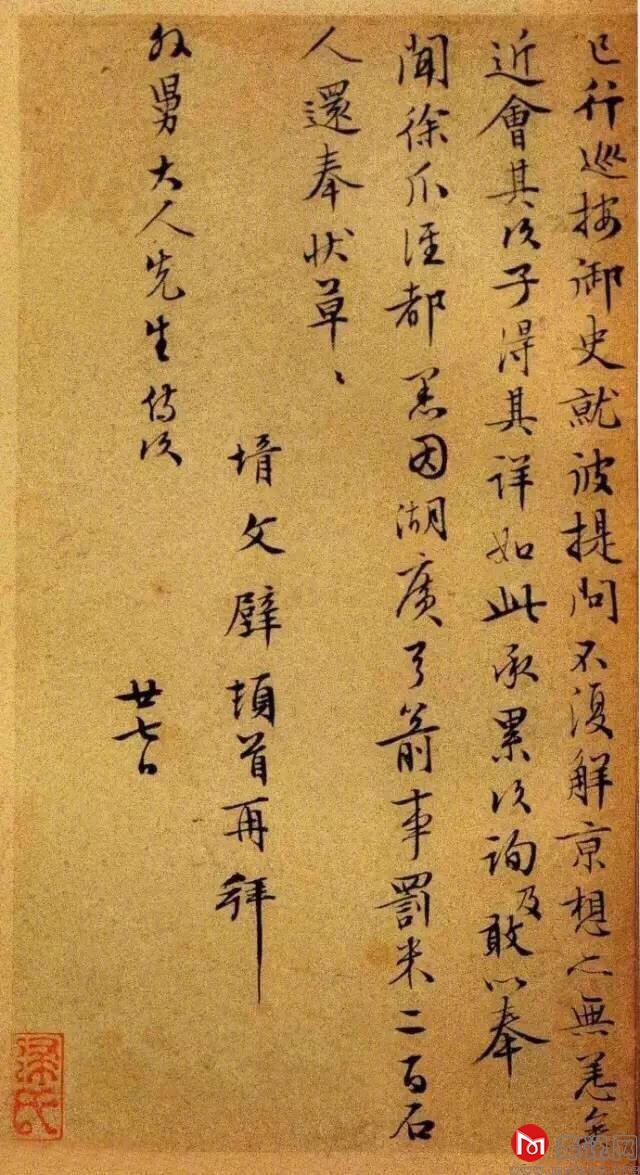 已行巡按御史就彼提问不復解京想亦無恙
近會其次子得其詳如此承累次詢及敢以奉
聞徐爪涇都因湖廣弓箭事罰米二百石
人還奉状草〻
壻文壁頓首再拜
外舅大人先生侍次
廿七日
梁氏